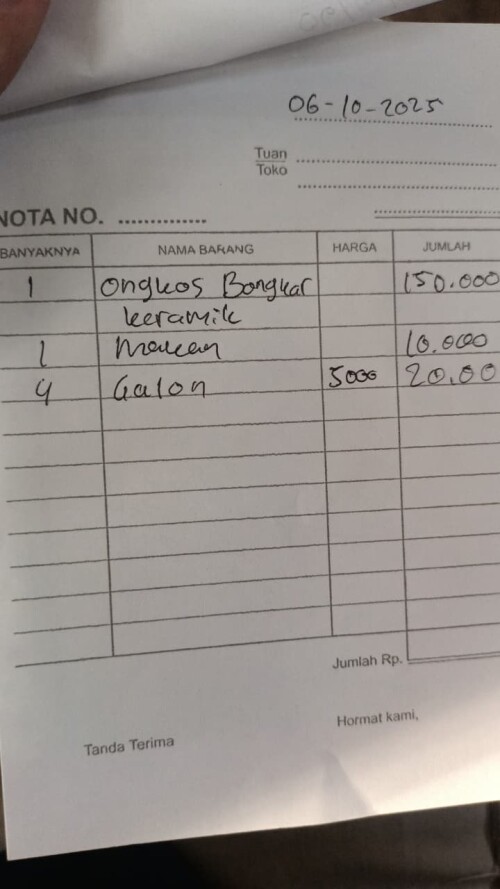 06-10-2025
Tuan
Toko
NOTA NO. ..............
BANYAKNYA NAMA BARANG HARGA JUMLAH
1 Ongkos Bongkar 150.000
keramik
1 Makan 10.000
4 Galon 5000 20.00
Jumlah Rp.
Hormat kami,
Tanda Terima